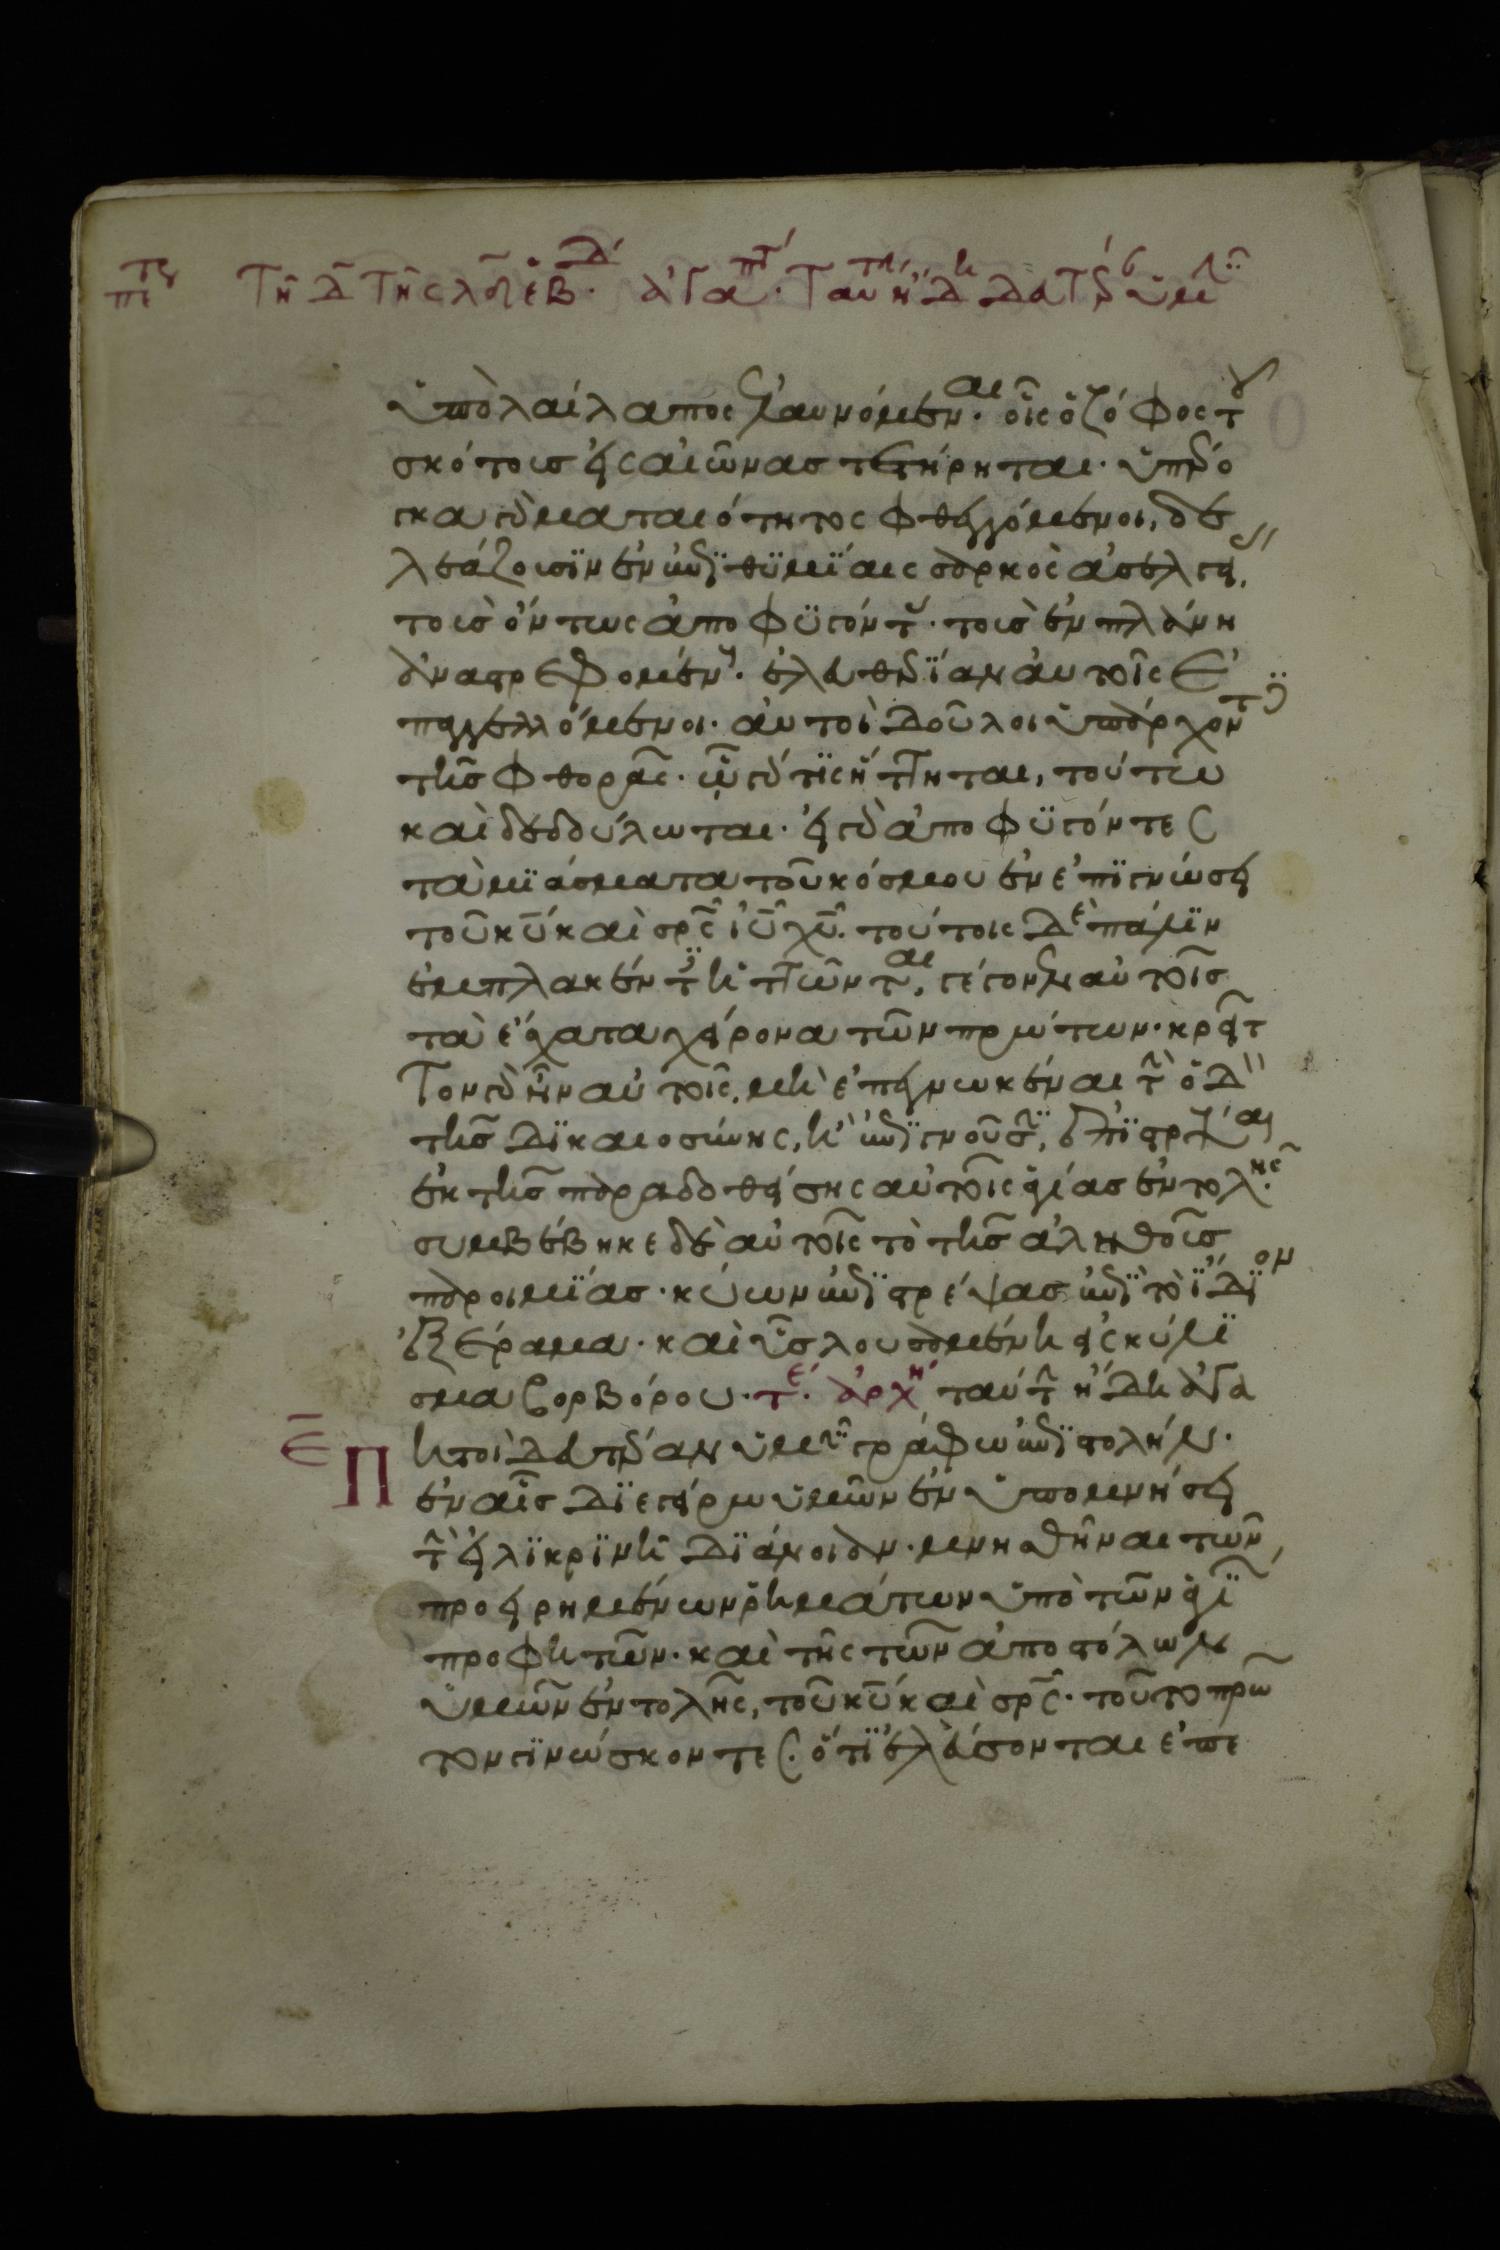 Τῆ Δ τῆς λ ἑβδ. ἀγαπτ. Ταύτην ἤδη δευτέραν ὑμῖν
ὑπὸ λαίλαπος ἐλαυνόμεναι. οἷς ὁ ζόφος τοῦ
σκότους εἰς αἰῶνας τετήρηται. ὑπέρο
γκα γὰρ ματαιότητος φθεγγόμενοι, δε
λεάζουσϊν ἐν ἐπϊθϋμΐαις σαρκὸς ἀσελγεί,
τοὺσ ὄντως ἀποφϋγόντας. τοὺσ ἐν πλάνη
ἀναστρεφομένους. ἐλευθερΐαν αὐτοῖς ἐ
παγγελλόμενοι. αὐτοὶ δοῦλοι ὑπάρχοντες
τῆσ φθορᾶς. ᾧ γάρ τϊς ἥττηται, τούτω
καὶ δεδούλωται. εἰ γὰρ ἀποφϋγόντες
τὰ μϊάσματα τοῦ κόσμου ἐν ἐπϊγνώσει
τοῦ κυ καὶ σρς ιυ χυ. τούτοις δὲ πάλϊν
ἐμπλακέντες ἡττῶνται, γέγονεν αὐτοῖσ
τὰ ἔσχατα χείρονα τῶν πρώτων. κρεῖτ
τον γὰρ ἦν αὐτοῖς, μὴ ἐπεγνωκέναι τὴν ὁδὸν
τῆσ δϊκαιοσύνης, ἢ ἐπϊγνοῦσϊν, ἐπϊστρέψαι
ἐκ τῆσ παραδοθείσης αὐτοῖς ἁγίασ ἐντολῆς.
συμβέβηκε δὲ αὐτοῖς τὸ τῆσ ἀληθοῦσ
παροιμΐασ. κύων ἐπϊστρέψασ ἐπϊ τὸ ἴδϊον
ἐξέραμα. καὶ ὗσ λουσαμένη εἰς κύλϊ
σμα βορβόρου. τε. ἀρχή ταύτην ἤδη ἀγα
Πητοὶ δευτέραν ὑμῖν γράφω ἐπϊστολήν.
ἐν αἷσ δϊεγείρω ὑμῶν ἐν ὑπομνήσει
τὴν εἰλϊκρϊνῆ δϊάνοιαν. μνησθῆναι τῶν
προειρημένων ῥημάτων ὑπὸ τῶν ἁγϊ
προφητῶν. καὶ τῆς τῶν ἀποστόλων
ὑμῶν ἐντολῆς, τοῦ κυ καὶ σρς. τοῦτο πρῶ
τον γϊνώσκοντες. ὅτϊ ἐλεύσονται ἐπε